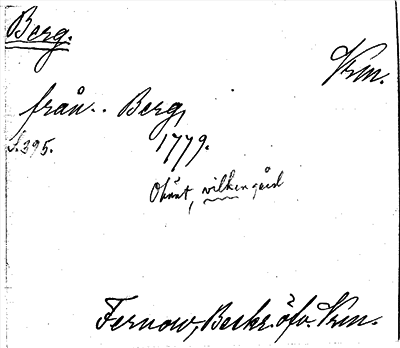 Berg.
Vrm.
från.. Berg,
S.395.
1779.
Okänt, vilken gård
Fernow, Beskr. öfv. Vrm.